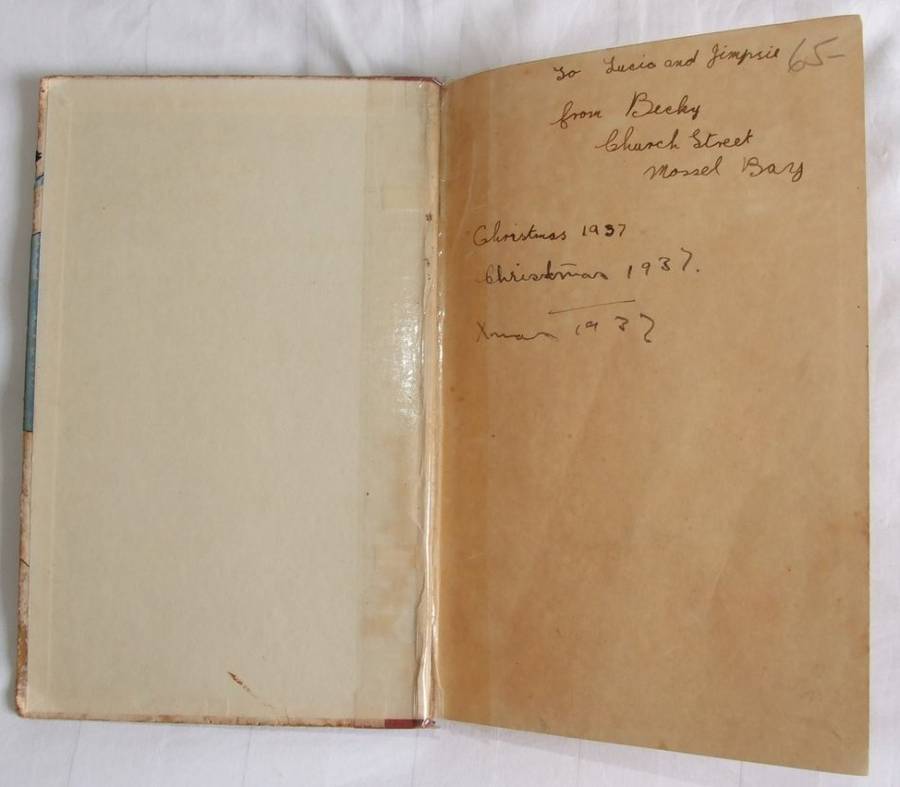 To Lucia and Jimpsie 65-
from Becky
Church Street
Mossel Bay
Christmas 1937
Christmas 1937.
Xmas 1937